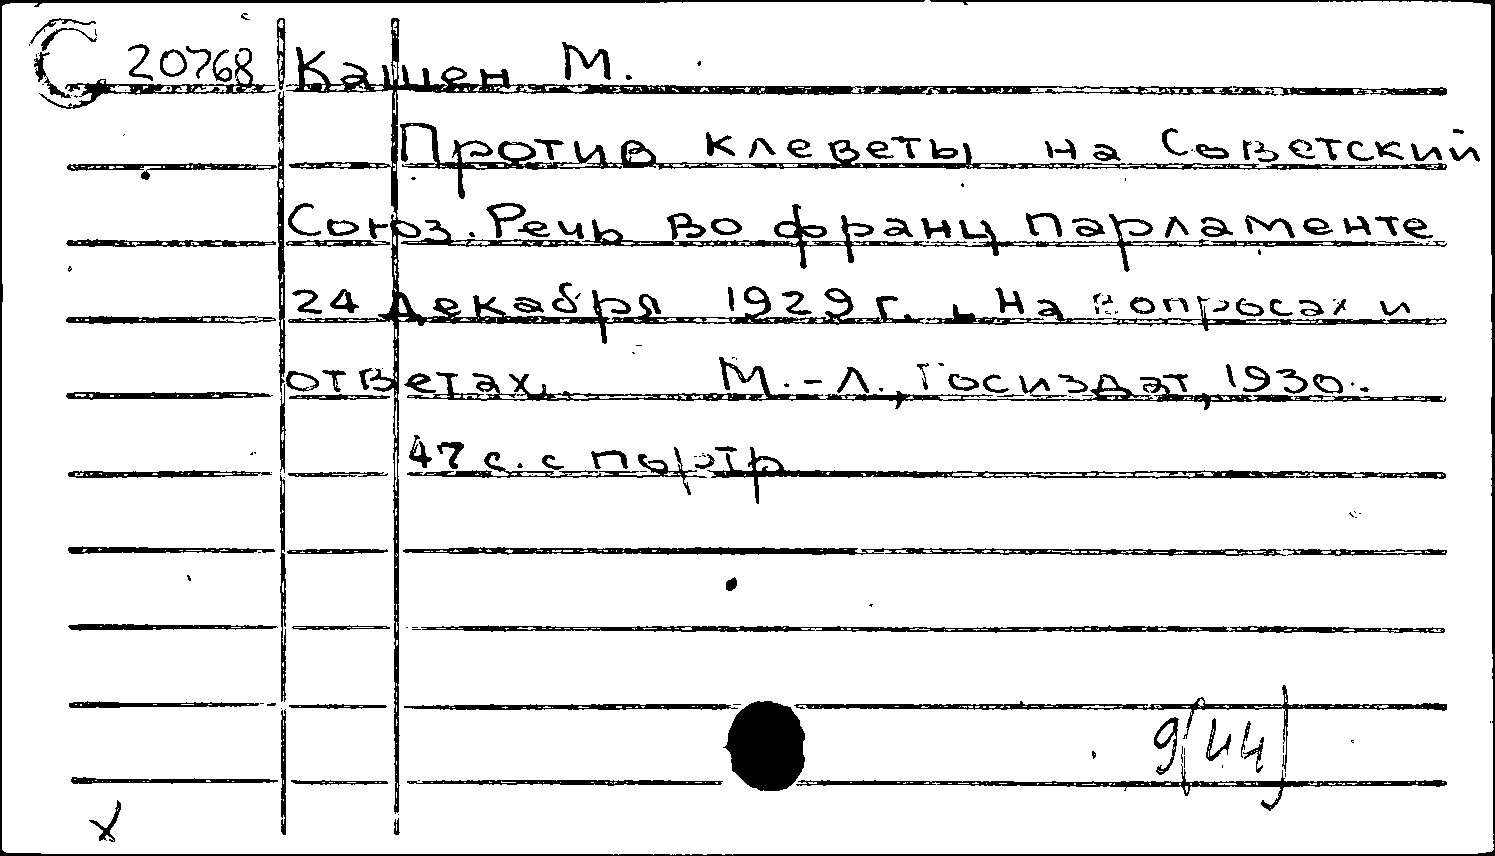 С 20768 Кашен М.
Против клеветы на Советский
Союз. Речь во франц парламенте
24 декабря 1929 г. , На вопросах и
ответах. М.-Л., Госиздат, 1930.
47 с. с портр
9(44)
x